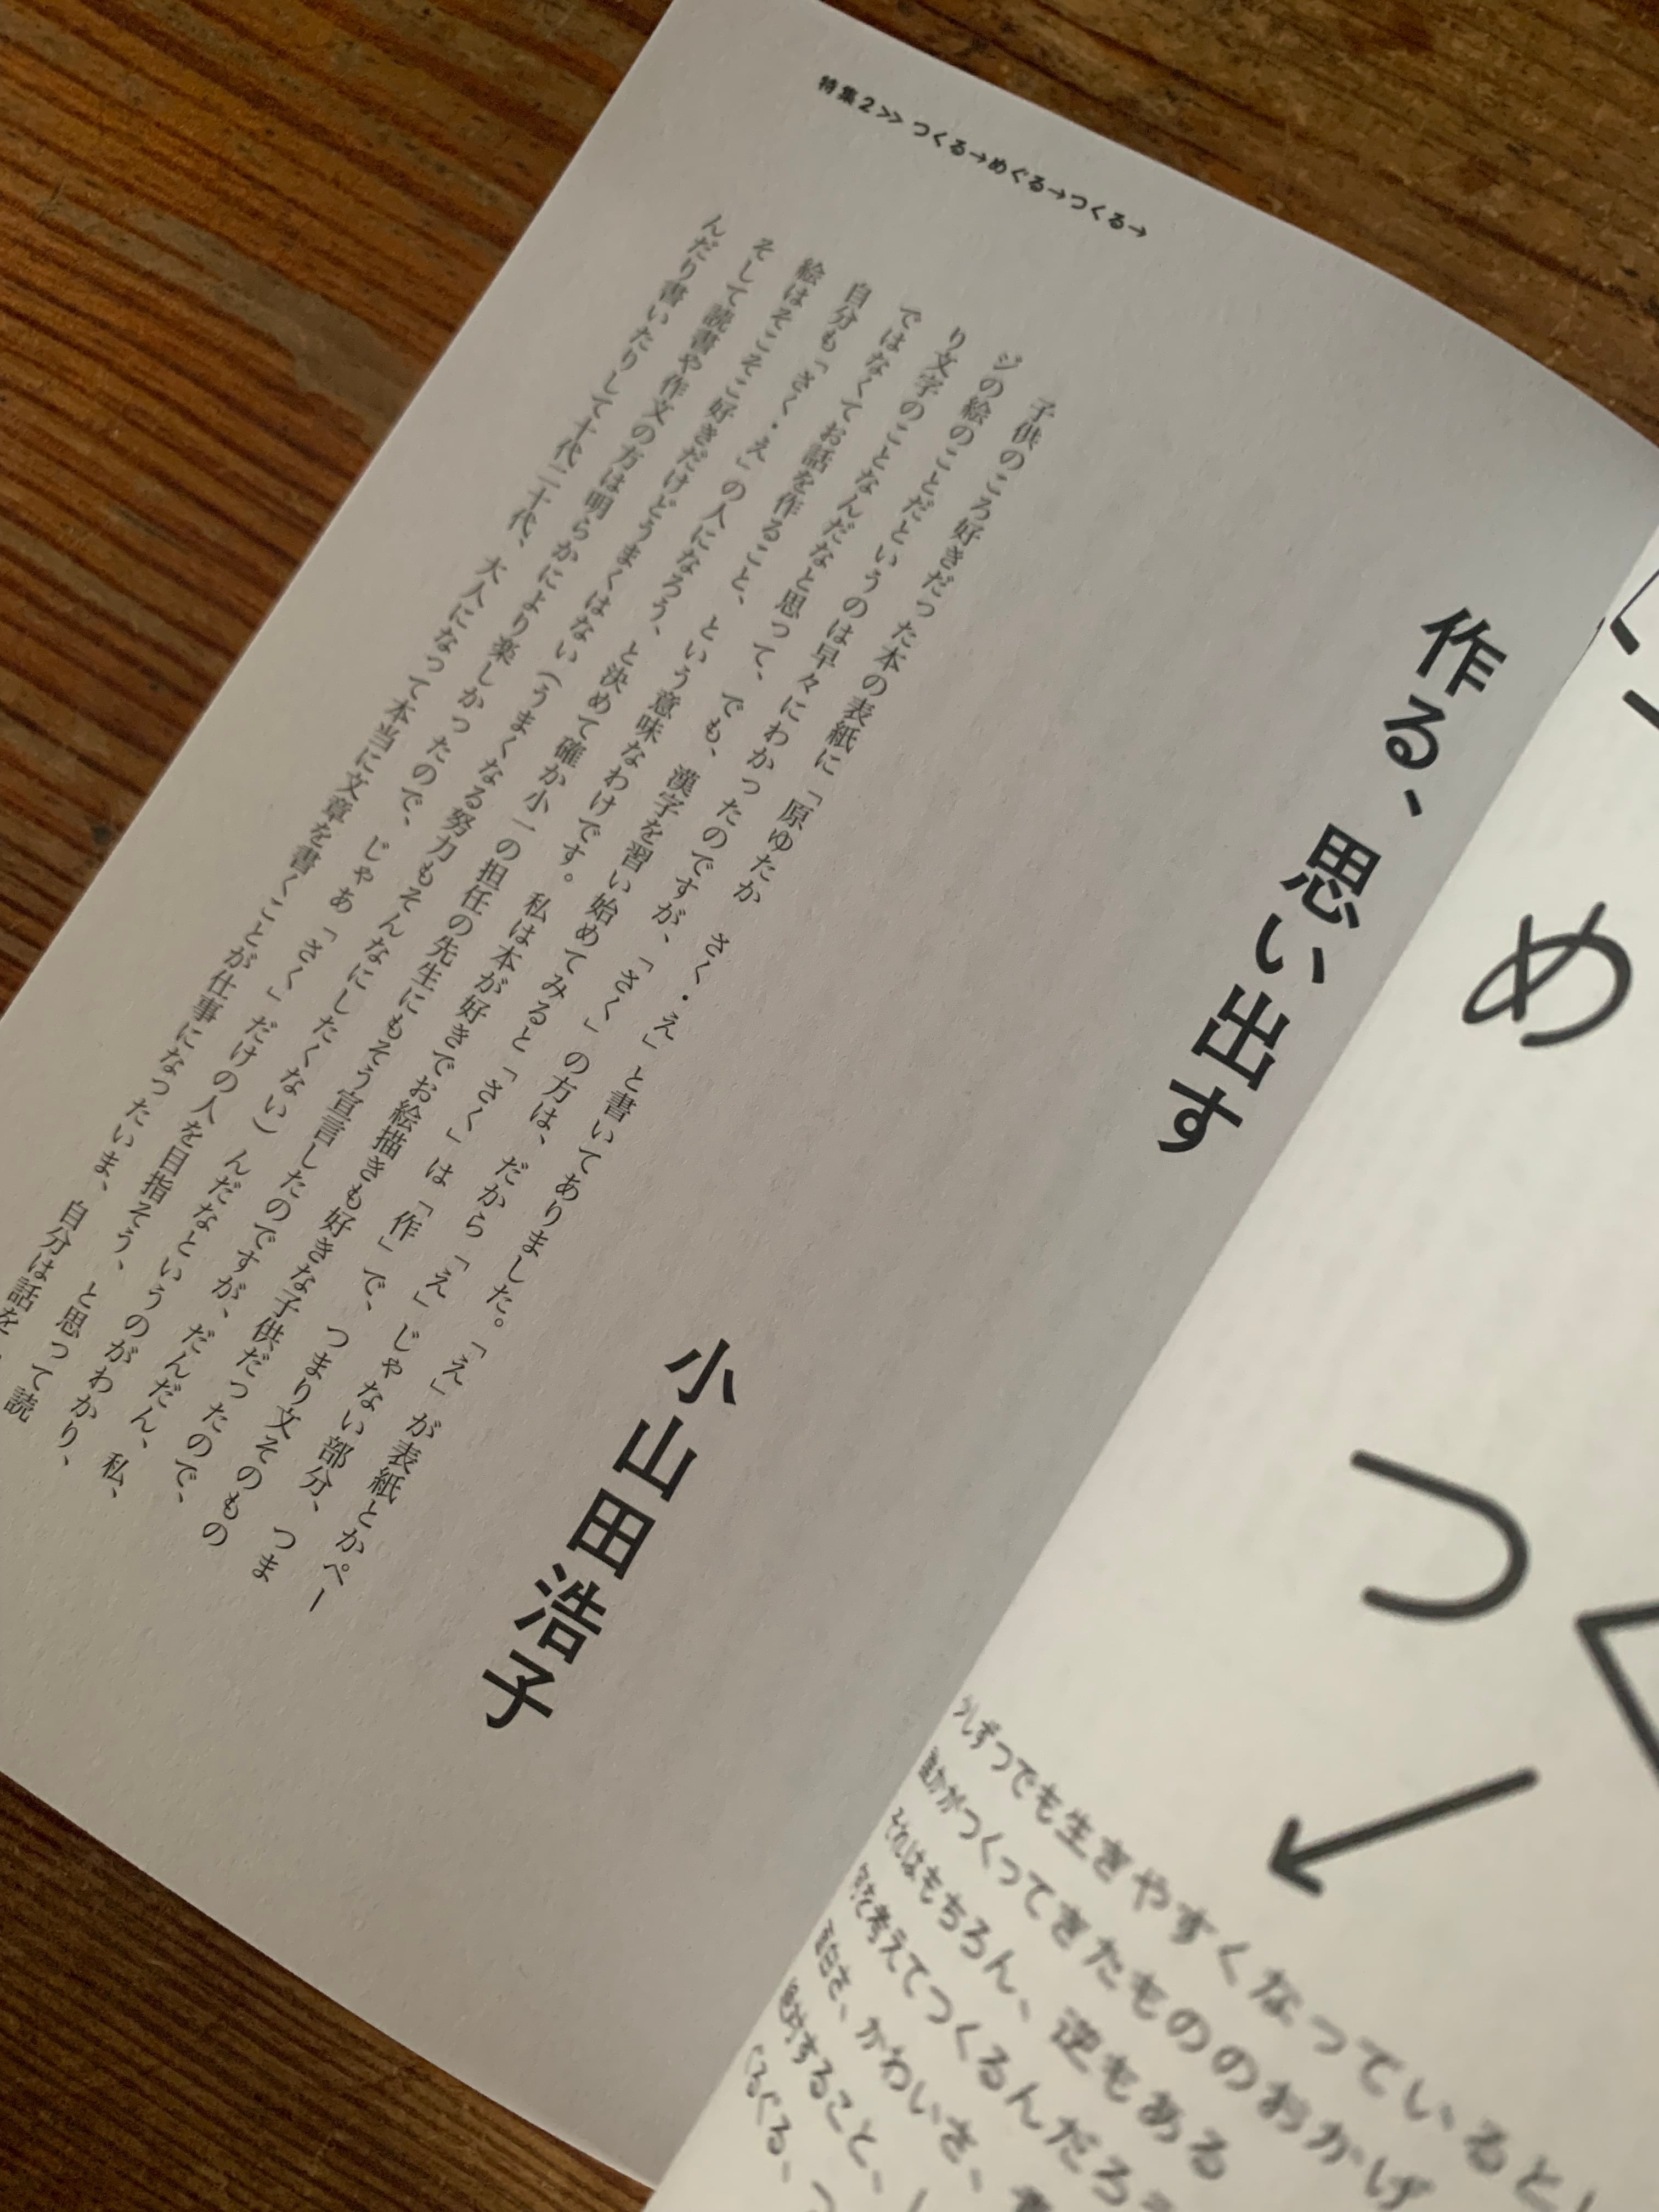 特集2>> つくる→めぐる→つくる→
作る、思い出す
小山田浩子
子供のころ好きだった本の表紙に「原ゆたか　さく・え」と書いてありました。「え」が表紙とかペー
ジの絵のことだというのは早々にわかったのですが、「さく」の方は、だから「え」じゃない部分、つま
り文字のことなんだなと思って、でも、漢字を習い始めてみると「さく」は「作」で、つまり文そのもの
ではなくてお話を作ること、という意味なわけです。私は本が好きでお絵描きも好きな子供だったので、
自分も「さく・え」の人になろう、と決めて確か小一の担任の先生にもそう宣言したのですが、だんだん、私、
絵はそこそこ好きだけどうまくはない（うまくなる努力もそんなにしたくない）んだなというのがわかり、
そして読書や作文の方は明らかにより楽しかったので、じゃあ「さく」だけの人を目指そう、と思って読
んだり書いたりして十代二十代、大人になって本当に文章を書くことが仕事になったいま、自分は話を
め
つ
ずつでも生きやすくなっていると
がつくってきたもののおかげ
それはもちろん、逆もある
考えてつくるんだろう
さ、かわいさ、
すること、
ぐる、つ